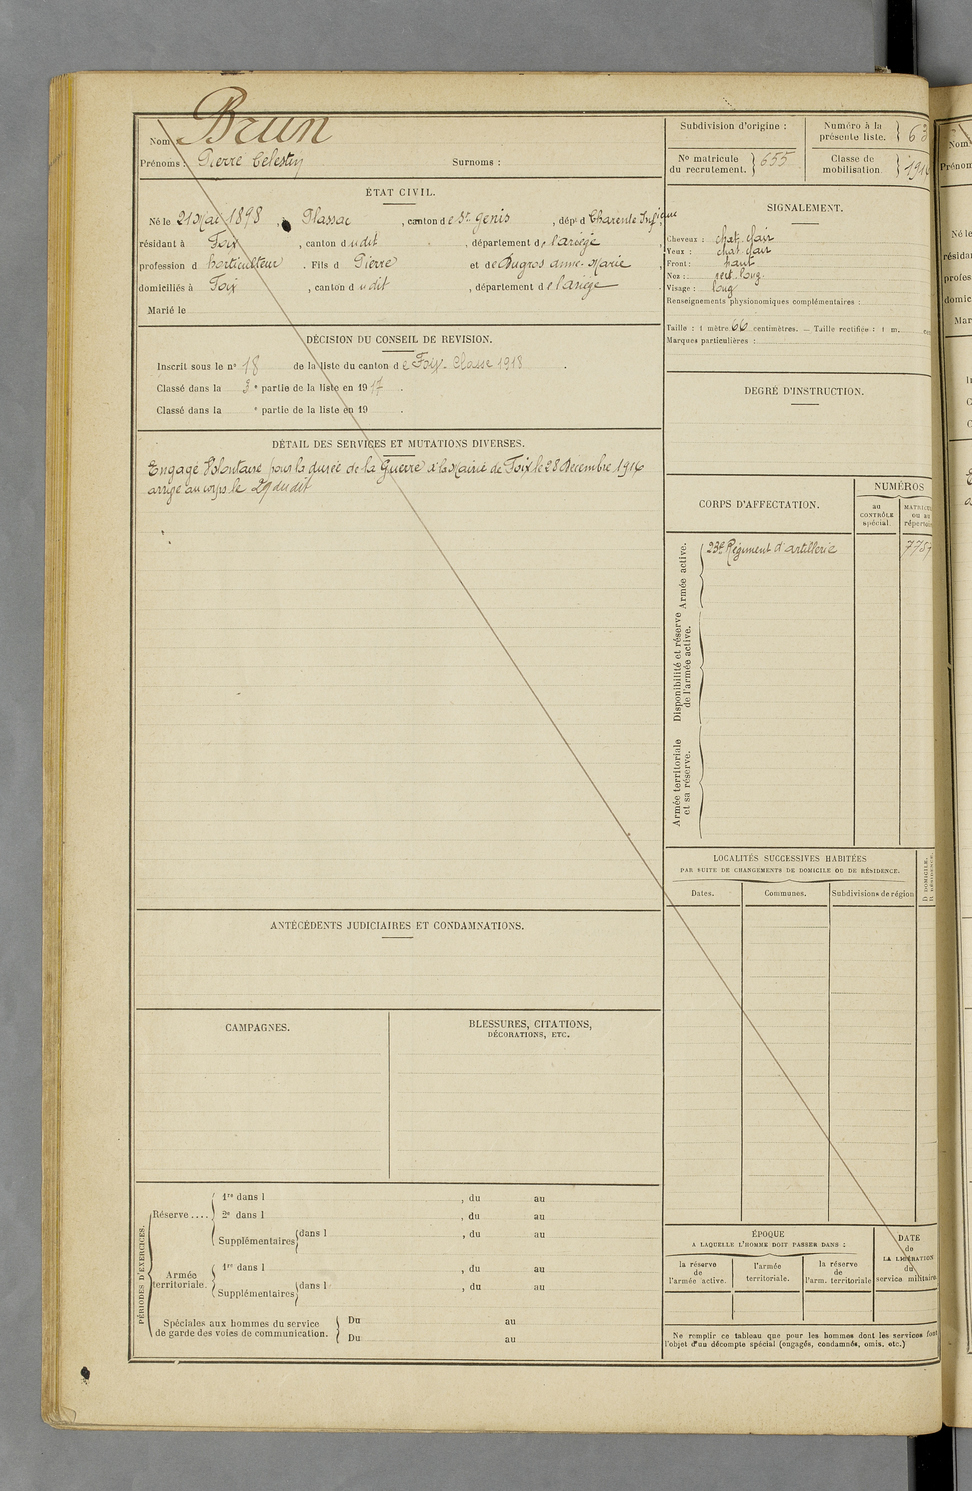 Nom Brun
Prénoms : Pierre Celestin Surnoms :
ÉTAT CIVIL.
Né le 21 Mai 1898, à Plassac, canton de St. Genis, dépt d Charente Infrieure
résidant à Foix, canton dudit, département d l'ariège
profession d horticulteur. Fils d Pierre et de Dugros Anne-Marie
domiciliés à Foix, canton dudit, département de l'ariège
Marié le
DÉCISION DU CONSEIL DE REVISION.
Inscrit sous le n° 18 de la liste du canton de Foix. Classe 1918.
Classé dans la 3e partie de la liste en 1917.
Classé dans la e partie de la liste en 19 .
DÉTAIL DES SERVICES ET MUTATIONS DIVERSES.
Engagé Volontaire pour la durée de la Guerre à la Mairie de Foix le 28 Décembre 1916
arrivé au corps le 29 du dit
ANTÉCÉDENTS JUDICIAIRES ET CONDAMNATIONS.
CAMPAGNES.
BLESSURES, CITATIONS,
DÉCORATIONS, ETC.
PÉRIODES D'EXERCICES.
Réserve.... 1re dans l , du au
2e dans l , du au
Supplémentaires dans l , du au
Armée
territoriale. 1re dans l , du au
Supplémentaires dans l , du au
Spéciales aux hommes du service
de garde des voies de communication. Du au
Du au
Subdivision d'origine :
Numéro à la
présente liste. 63
N° matricule
du recrutement. 655
Classe de
mobilisation 1916
SIGNALEMENT.
Cheveux : chat. clair
Yeux : chat clair
Front : haut
Nez : rect. long.
Visage : long
Renseignements physionomiques complémentaires :
Taille : 1 mètre 66 centimètres. — Taille rectifiée : 1 m.
Marques particulières :
DEGRÉ D'INSTRUCTION.
CORPS D'AFFECTATION.
NUMÉROS
au
CONTRÔLE
spécial
MATRICULE
ou au
répertoire
Armée active.
23e Régiment d'artillerie
Disponibilité et réserve
de l'armée active.
Armée territoriale
et sa réserve.
LOCALITÉS SUCCESSIVES HABITÉES
PAR SUITE DE CHANGEMENTS DE DOMICILE OU DE RÉSIDENCE.
D. DOMICILE.
R. RÉSIDENCE.
Dates. Communes. Subdivisions de région
ÉPOQUE
A LAQUELLE L'HOMME DOIT PASSER DANS :
la réserve
de
l'armée active.
l'armée
territoriale.
la réserve
de
l'arm. territoriale
DATE
de
LA LIBÉRATION
du
service militaire.
Ne remplir ce tableau que pour les hommes dont les services font
l'objet d'un décompte spécial (engagés, condamnés, omis, etc.)